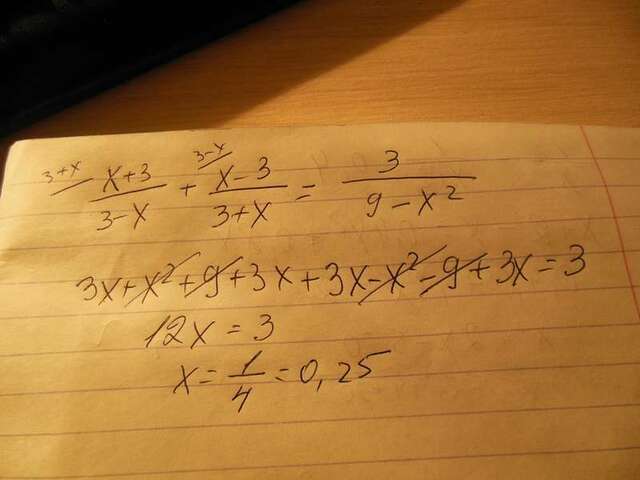 3+x/ (x+3)/(3-x) + 3-x/ (x-3)/(3+x) = 3/(9-x²)
3x+x²+9+3x+3x-x²-9+3x=3
12x=3
x=1/4=0,25